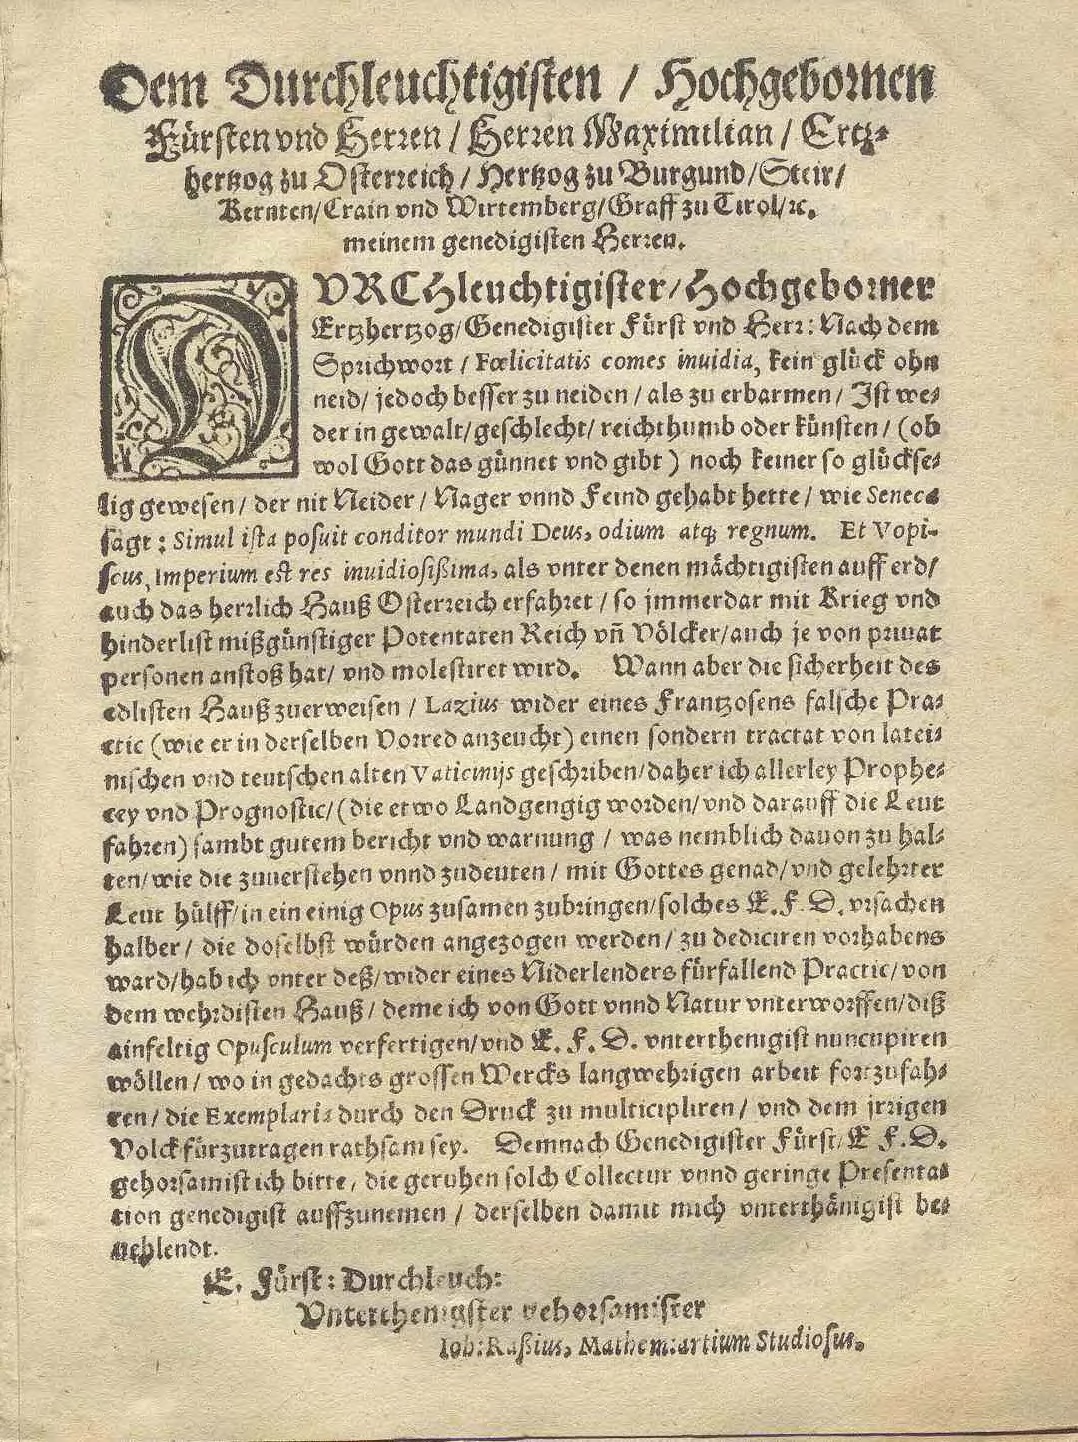 Dem Durchleuchtigisten / Hochgebornen
Fürsten vnd Herren / Herren Maximilian / Ertz-
hertzog zu Osterreich / Hertzog zu Burgund / Steir /
Kernten / Crain vnd Wirtemberg / Graff zu Tirol / ꝛc.
meinem genedigisten Herren.
DVRCHleuchtigister / Hochgeborner
Ertzhertzog / Genedigister Fürst vnd Herr: Nach dem
Sprichwort / Fœlicitatis comes inuidia, kein glück ohn
neid / jedoch besser zu neiden / als zu erbarmen / Ist we-
der in gewalt / geschlecht / reichthumb oder künsten / (ob
wol Gott das günnet vnd gibt) noch keiner so glückse-
lig gewesen / der nit Neider / Nager vnnd Feind gehabt hette / wie Seneca
sagt: Simul ista posuit conditor mundi Deus, odium atq; regnum. Et Vopi-
scus, Imperium est res inuidiosißima, als vnter denen mächtigisten auff erd /
auch das herrlich Hauß Osterreich erfahret / so jmmerdar mit Krieg vnd
hinderlist mißgünstiger Potentaten Reich vñ Völcker / auch je von priuat
personen anstoß hat / vnd molestiret wird. Wann aber die sicherheit des
edlisten Hauß zuerweisen / Lazius wider eines Frantzosens falsche Pra-
ctic (wie er in derselben Vorred anzeucht) einen sondern tractat von latei-
nischen vnd teutschen alten Vaticinijs geschriben / daher ich allerley Prophe-
cey vnd Prognostic / (die etwo Landgengig worden / vnd darauff die Leut
fahren) sambt gutem bericht vnd warnung / was nemblich dauon zu hal-
ten / wie die zuuerstehen vnnd zudeuten / mit Gottes genad / vnd gelehrter
Leut hülff / in ein einig Opus zusamen zubringen / solches E. F. D. vrsachen
halber / die doselbst würden angezogen werden / zu dediciren vorhabens
ward / hab ich vnter deß / wider eines Niderlenders fürfallend Practic / von
dem wehrdisten Hauß / deme ich von Gott vnnd Natur vnterworffen / diß
ainfeltig Opusculum verfertigen / vnd E. F. D. vnterthenigist nuncupiren
wöllen / wo in gedachts grossen Wercks langwehrigen arbeit fortzufah-
ren / die Exemplaria durch den Druck zu multicipliren / vnd dem jrrigen
Volck fürzutragen rathsam sey. Demnach Genedigister Fürst / E F. D.
gehorsamist ich bitte, die geruhen solch Collectur vnnd geringe Presenta-
tion genedigist auffzunemen / derselben damit mich vnterthänigist be-
uehlendt.
E. Fürst: Durchleuch:
Vnterthenigster gehorsamister
Joh: Raßius, Mathem: artium Studiosus.